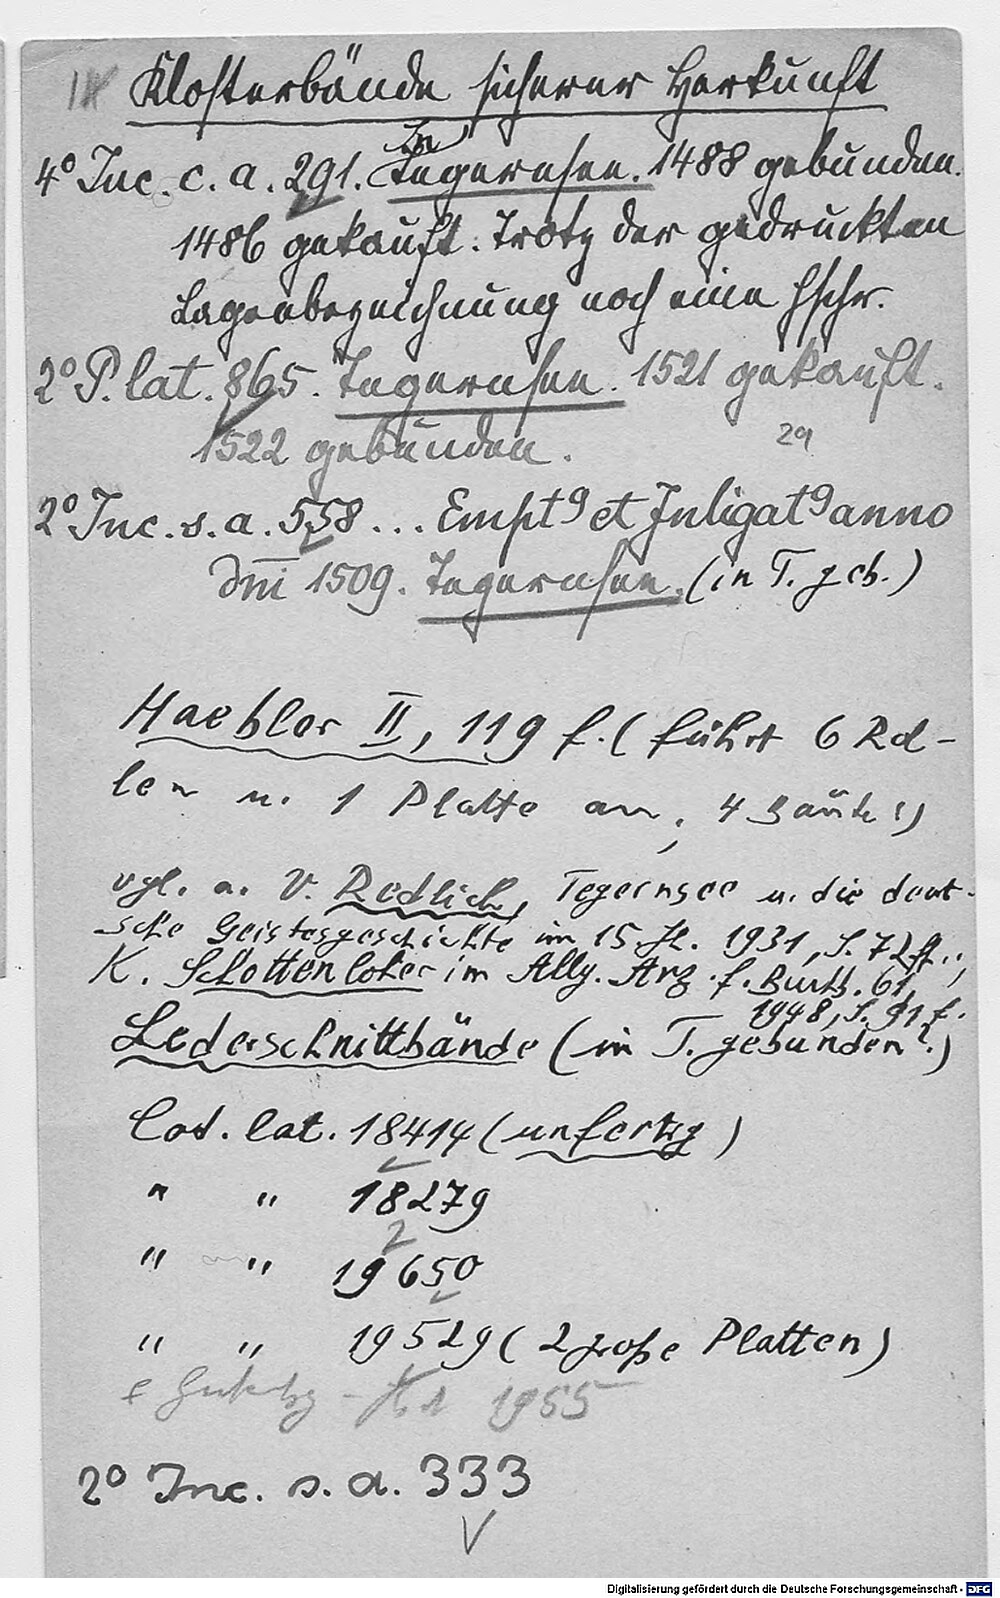 Klosterbände sicherer Herkunft
In
4° Inc. c. a. 291. Tegernsee. 1488 gebunden.
1486 gekauft. Trotz der gedruckten
Lagenbezeichnung noch eine Hschr.
2° P. lat. 865. Tegernsee. 1521 gekauft.
1522 gebunden.
29
2° Inc. s. a. 558 ... Empt9 et Inligat9 anno
dm̅i 1509. Tegernsee. (in T. geb.)
Haebler II, 119 f. (führt 6 Rol-
len u. 1 Platte an, 4 Bände!)
vgl. a. V. Redlich, Tegernsee u. die deut-
sche Geistesgeschichte im 15. Jh. 1931, S. 72 ff.;
K. Schottenloher im Allg. Anz. f. Buchb. 61,
1948, S. 91 f.
Lederschnittbände (in T. gebunden?)
Cod. lat. 18414 (unfertig)
" " 18279
2
" " 19650
" " 19529 (2 große Platten)
1955
2° Inc. s. a. 333
Digitalisierung gefördert durch die Deutsche Forschungsgemeinschaft - DFG